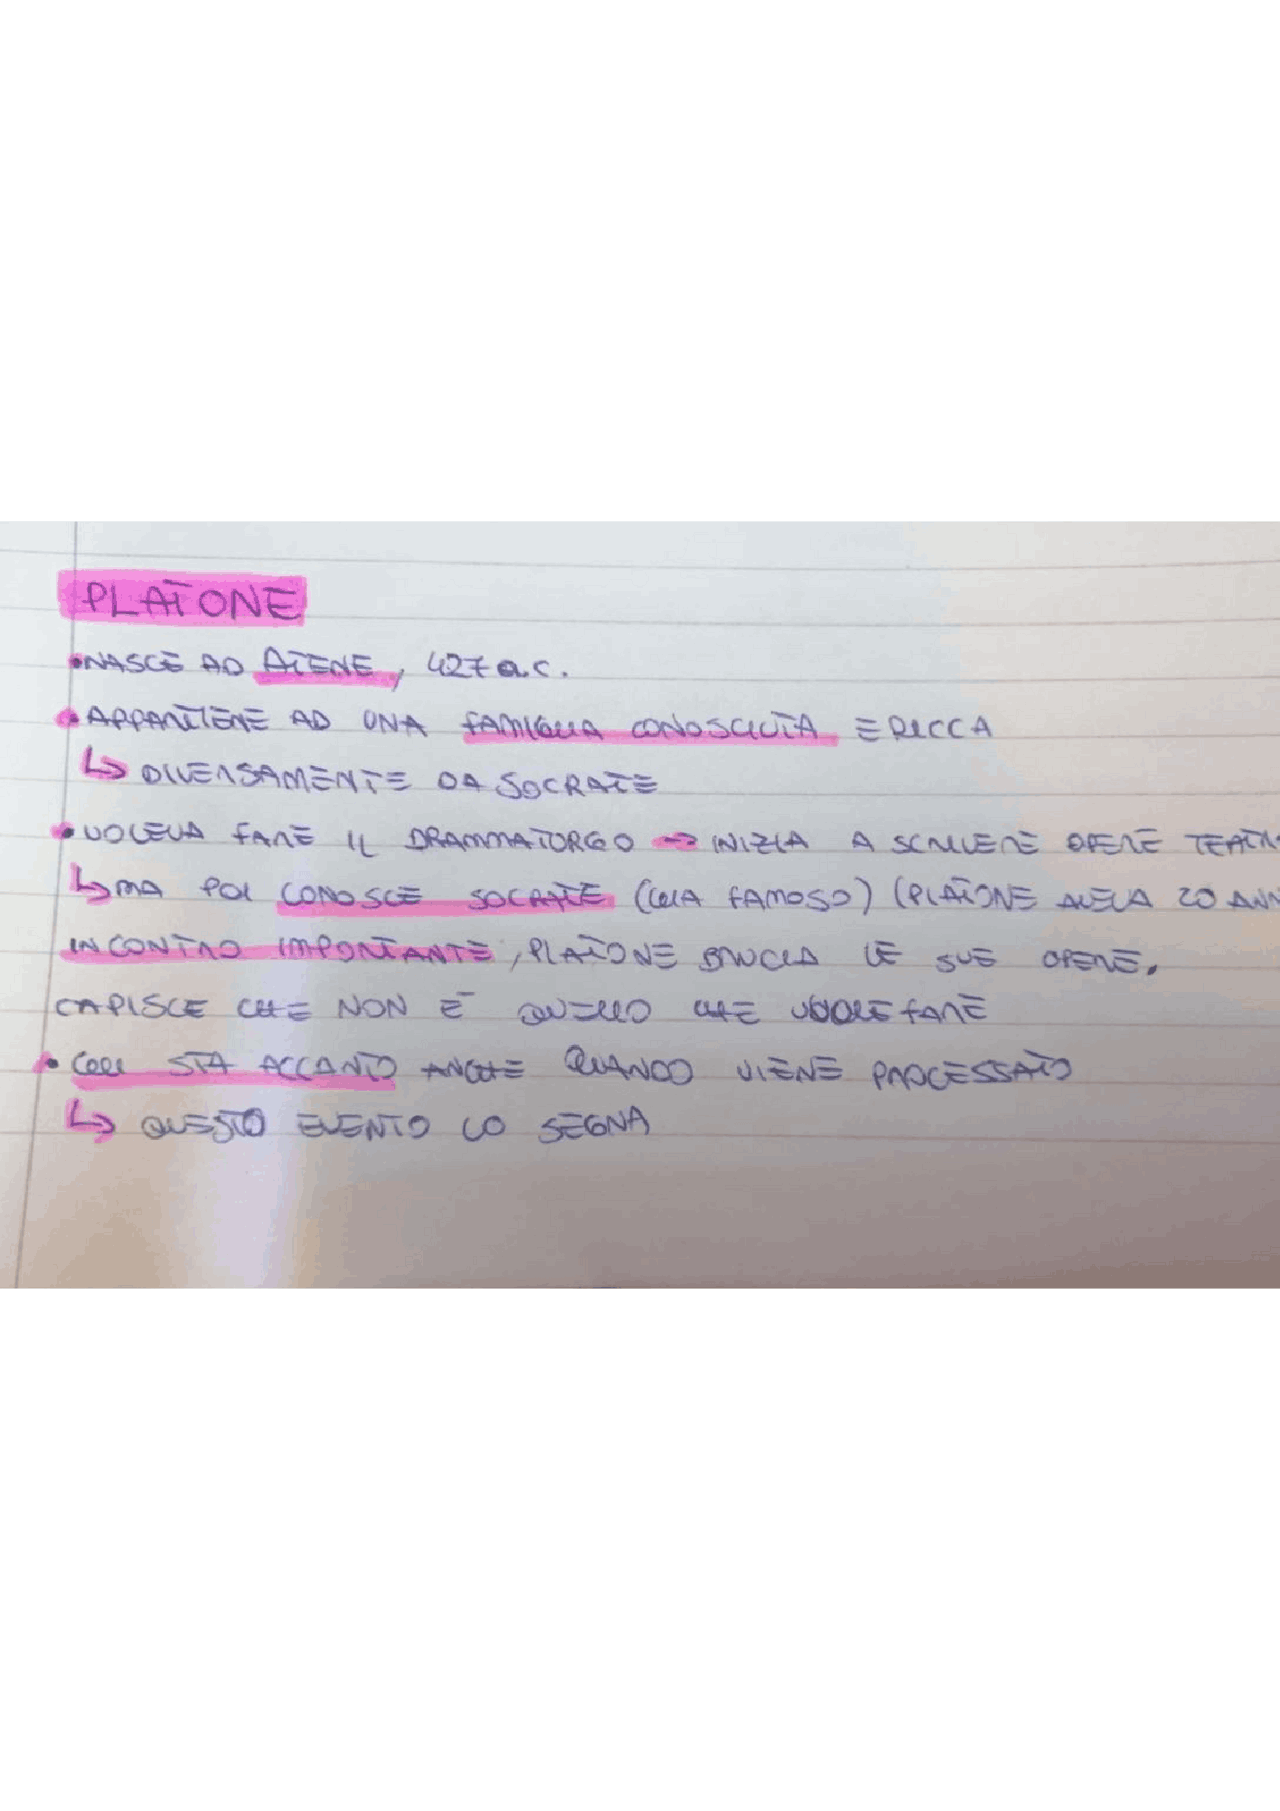 PLATONE
•NASCE AD ATENE, 427 a.C.
•APPARTIENE AD UNA FAMIGLIA CONOSCIUTA E RICCA
↳ DIVERSAMENTE DA SOCRATE
•VOLEVA FARE IL DRAMMATURGO → INIZIA A SCRIVERE OPERE TEATR
↳ MA POI CONOSCE SOCRATE (ERA FAMOSO) (PLATONE AVEVA 20 ANN
INCONTRO IMPORTANTE, PLATONE BRUCIA LE SUE OPERE,
CAPISCE CHE NON È QUELLO CHE VUOLE FARE
• STA ACCANTO ANCHE QUANDO VIENE PROCESSATO
↳ QUESTO EVENTO LO SEGNA